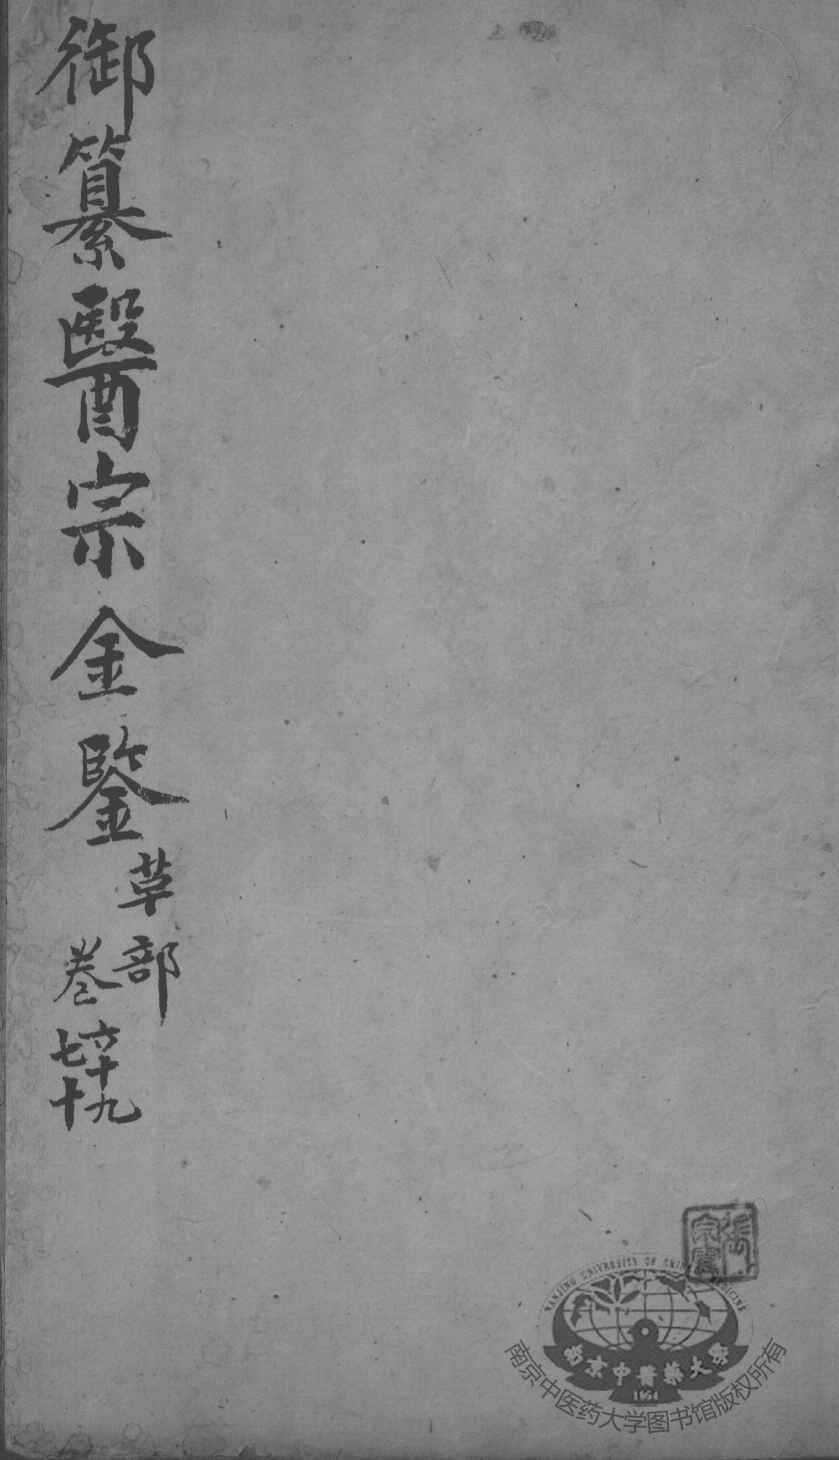 御纂醫宗金鑒
草部
卷六十九
七十
NANJING UNIVERSITY OF CHINESE MEDICINE
南京中醫藥大學
1954
南京中医药大学图书馆版权所有